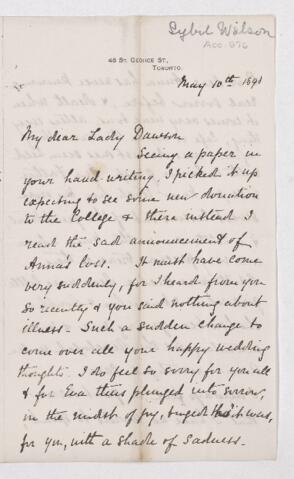 Sybil Wilson
Acc. 976
48 ST. GEORGE ST.,
TORONTO.
May 10th 1891
My dear Lady Dawson
Seeing a paper in
your hand writing I picked it up
expecting to see some new donation
to the College & there instead I
read the sad announcement of
Anna's loss. It must have come
very suddenly, for I heard from you
so recently & you said nothing about
illness. Such a sudden change to
come over all your happy wedding
thoughts. I do feel so sorry for you all
& for Eva thus plunged into sorrow,
in the midst of joy, tinged tho' it was,
for you, with a shade of sadness.